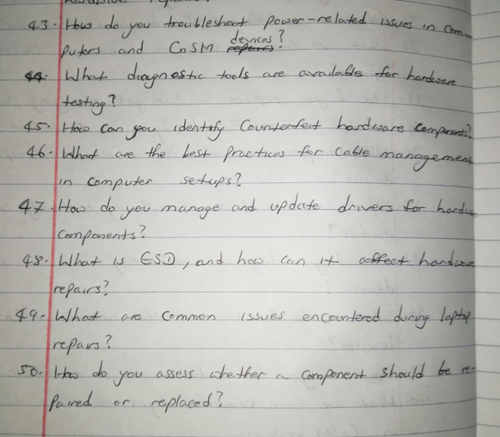 hardware repairs?
43. How do you troubleshoot power-related issues in com-
puters and CoSM devices?
44. What diagnostic tools are available for hardware
testing?
45. How can you identify Counterfeit hardware components?
46. What are the best practices for cable management
in computer setups?
47. How do you manage and update drivers for hardware
components?
48. What is ESD, and how can it affect hardware
repairs?
49. What are common issues encountered during laptop
repairs?
50. How do you assess whether a component should be re-
paired or replaced?